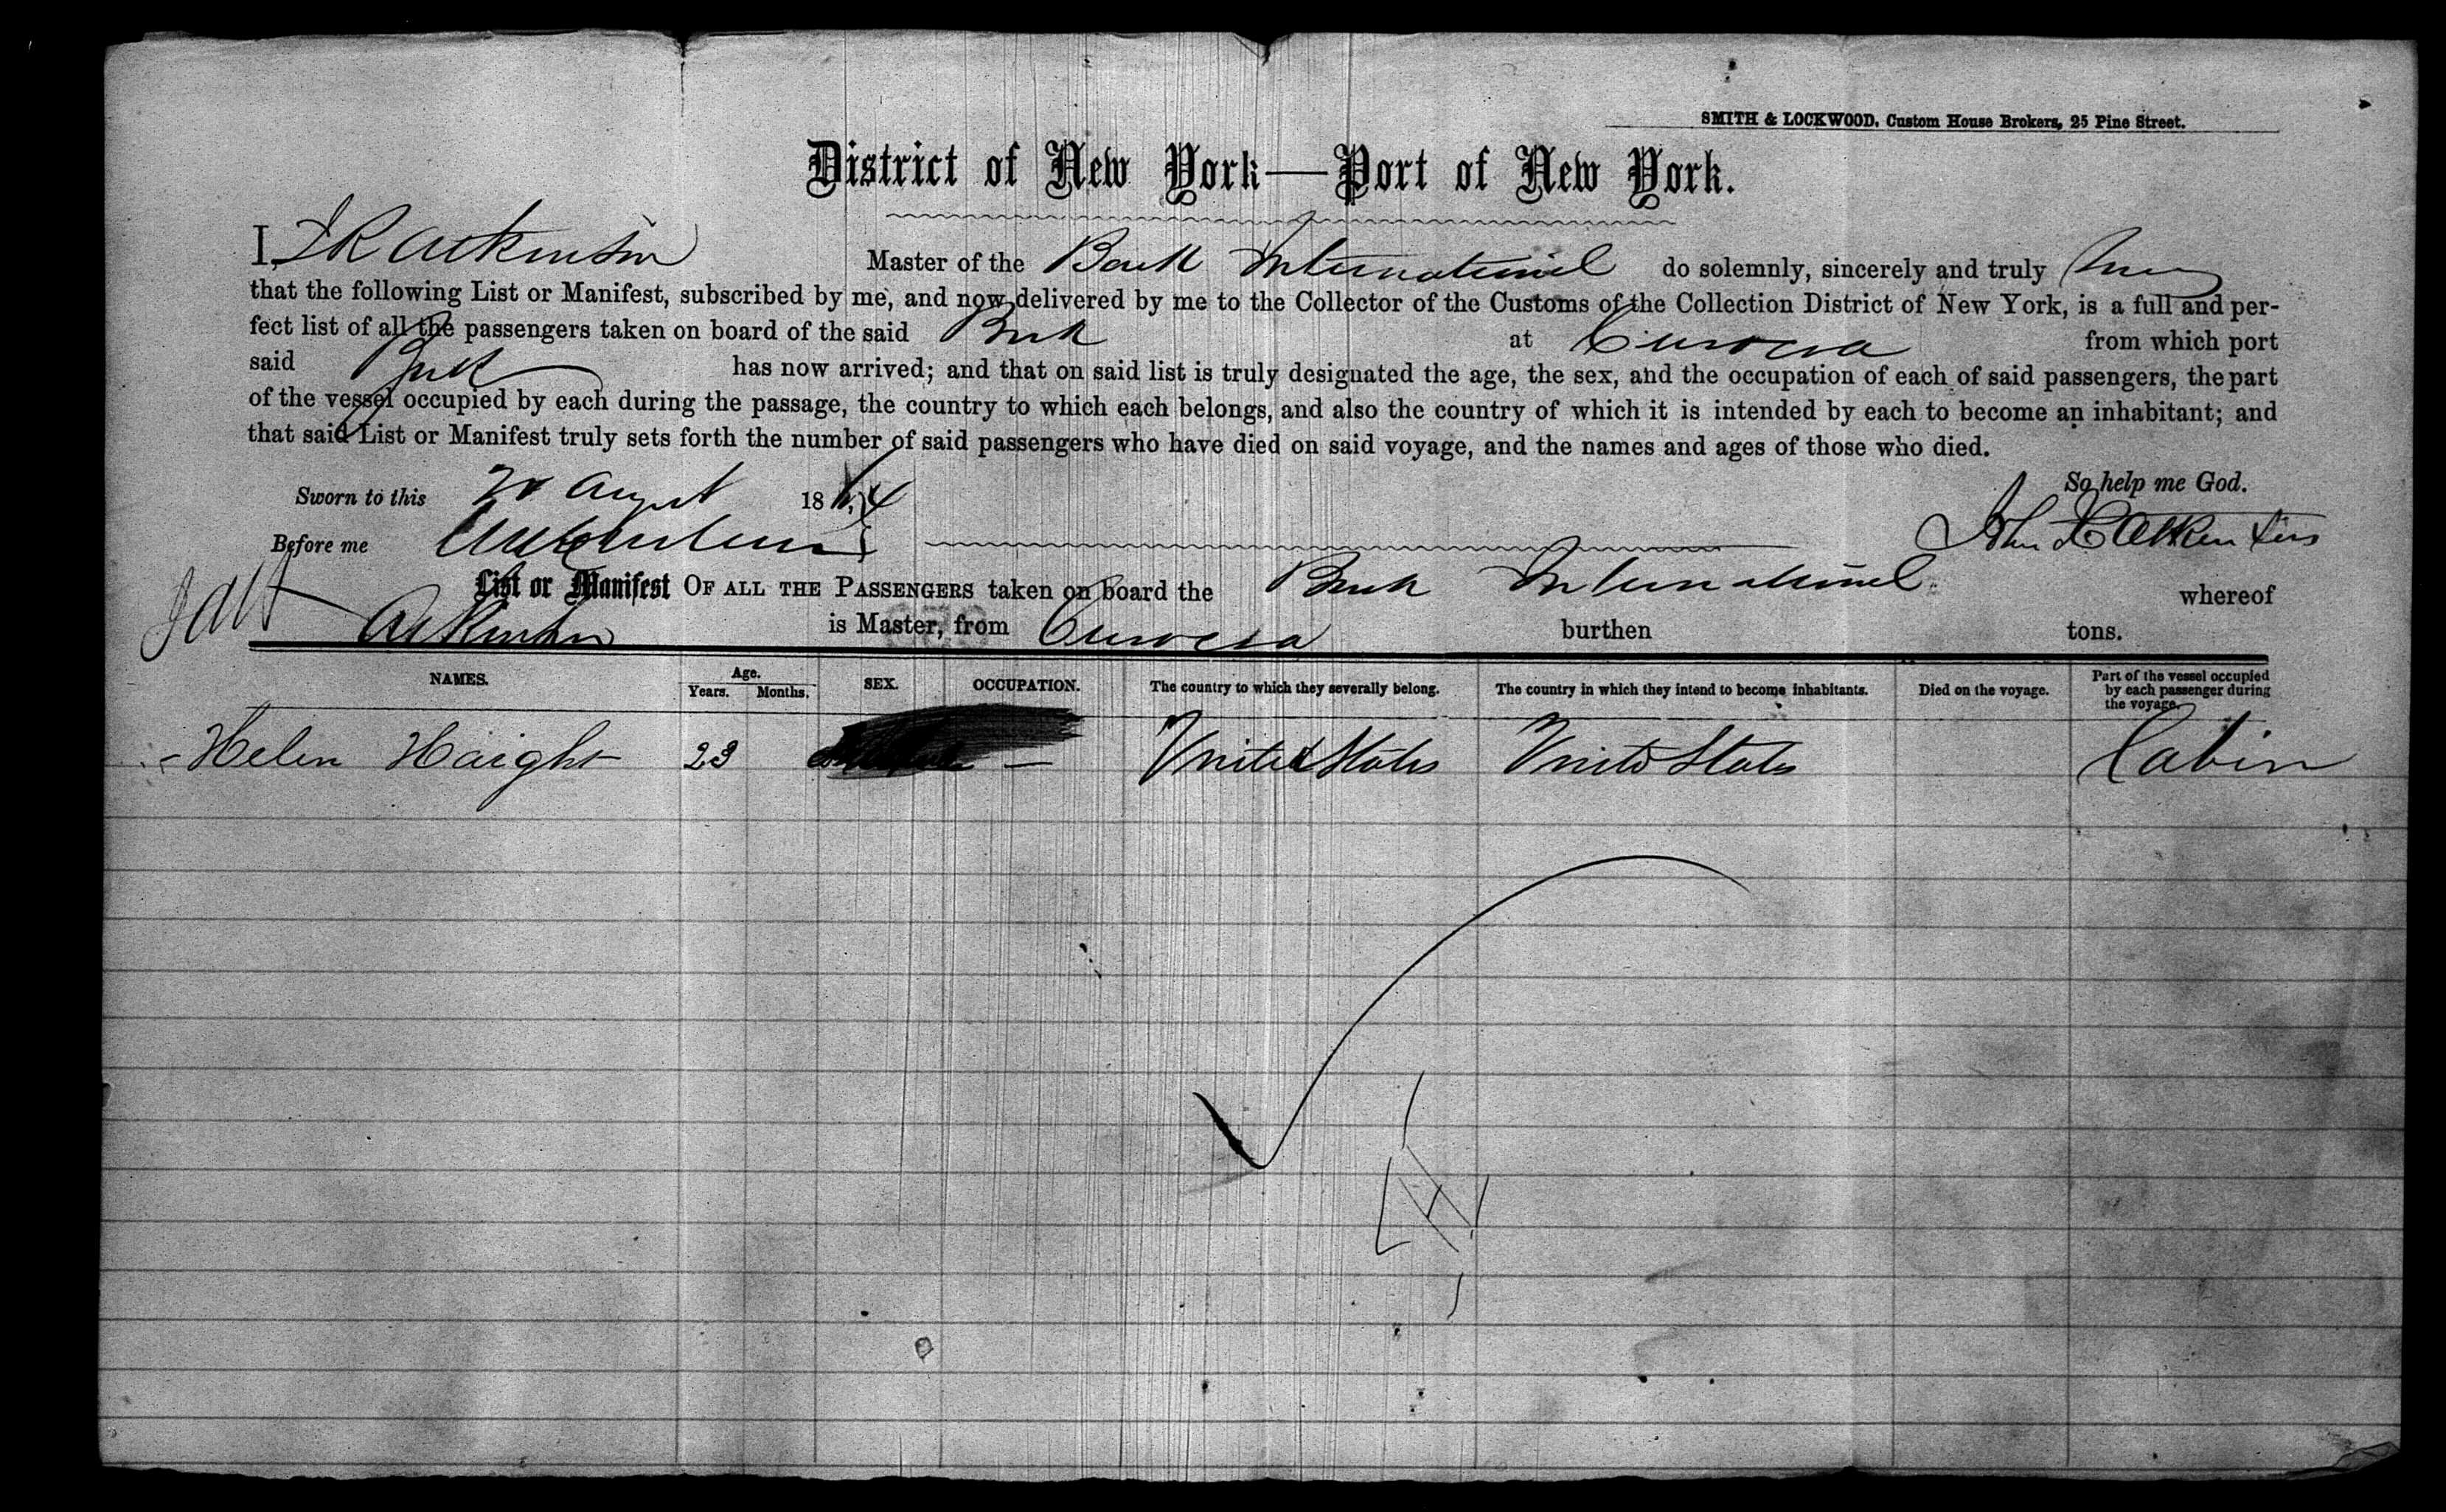 SMITH & LOCKWOOD, Custom House Brokers, 25 Pine Street.
District of New York—Port of New York.
I, J R Atkinson Master of the Bark International do solemnly, sincerely and truly
that the following List or Manifest, subscribed by me, and now delivered by me to the Collector of the Customs of the Collection District of New York, is a full and per-
fect list of all the passengers taken on board of the said Bark at Curocoa from which port
said Bark has now arrived; and that on said list is truly designated the age, the sex, and the occupation of each of said passengers, the part
of the vessel occupied by each during the passage, the country to which each belongs, and also the country of which it is intended by each to become an inhabitant; and
that said List or Manifest truly sets forth the number of said passengers who have died on said voyage, and the names and ages of those who died.
Sworn to this August 1864 So help me God.
Before me John R Atkinson
List or Manifest OF ALL THE PASSENGERS taken on board the Bark International whereof
Atkinson is Master, from Curocoa burthen tons.
NAMES. Age. Years. Months. SEX. OCCUPATION. The country to which they severally belong. The country in which they intend to become inhabitants. Died on the voyage. Part of the vessel occupied by each passenger during the voyage.
Helen Haight 23 — United States United States Cabin